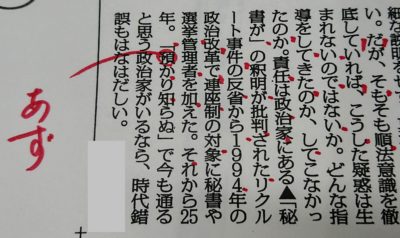 い。だが、そもそも順法意識を徹
底していれば、こうした疑惑は生
まれないのではないか。どんな指
導をしてきたのか、してこなかっ
たのか。責任は政治家にある▲「秘
書が」の釈明が批判されたリクル
ート事件の反省から1994年の
政治改革で連座制の対象に秘書や
選挙管理者を加えた。それから25
年。「預かり知らぬ」で今も通る
と思う政治家がいるなら、時代錯
誤もはなはだしい。
あず